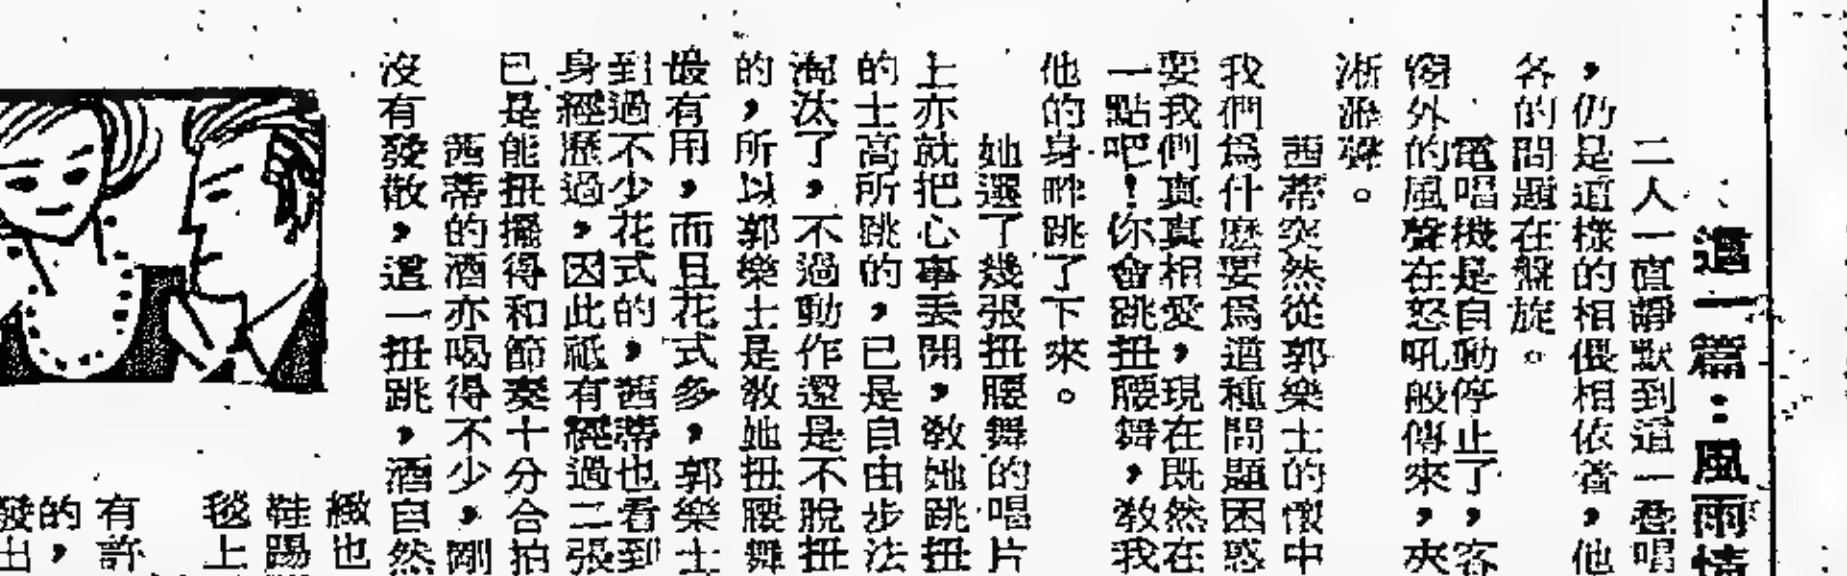 這一篇：風雨情
二人一直靜默到這一叠唱
，仍是這樣的相偎相依着，他
各的問題在盤旋。
電唱機是自動停止了，客
窗外的風聲在怒吼般傳來，夾
淅瀝聲。
茜蒂突然從郭樂士的懷中
我們爲什麽要爲這種問題困惑
要我們真真相愛，現在既然在
一點吧！你會跳扭腰舞，敎我
他的身畔跳了下來。
她選了幾張扭腰舞的唱片
上亦就把心事丢開，敎她跳扭
的士高所跳的，已是自由步法
淘汰了，不過動作還是不脫扭
的，所以郭樂士是敎她扭腰舞
最有用，而且花式多，郭樂士
到過不少花式的，茜蒂也看到
身經歷過，因此祗有經過二張
已是能扭擺得和節奏十分合拍
茜蒂的酒亦喝得不少，剛
沒有發散，這一扭跳，酒自然
緻也
鞋踢
毯上
有許
的，
發出